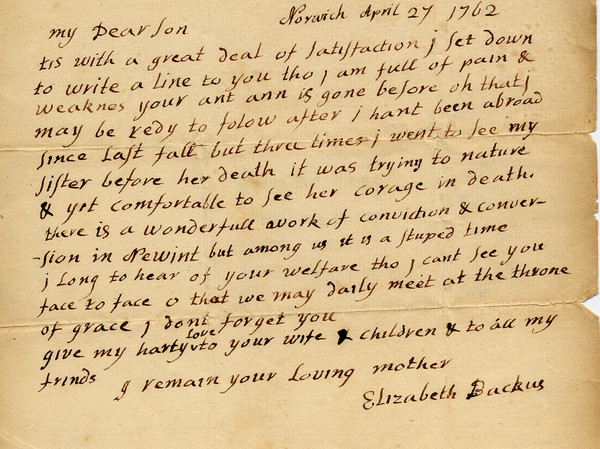 Norwich April 27 1762
my Dear Son
tis with a great deal of Satisfaction j set down
to write a line to you tho j am full of pain &
weaknes your ant ann is gone before oh that j
may be redy to folow after j hant been abroad
since Last fall but three times j went to see my
sister before her death it was trying to nature
& yet comfortable to see her corage in death.
there is a wonderfull work of conviction & conver-
-sion in Newint but among us it is a stuped time
j Long to hear of your welfare tho j cant see you
face to face o that we may daily meet at the throne
of grace j dont forget you
give my harty Love to your wife & children & to all my
frinds j remain your Loving mother
Elizabeth Backus